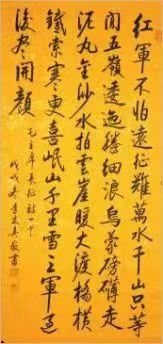 紅軍不怕遠征難萬水千山只等
閒五嶺逶迤騰細浪烏蒙磅礴走
泥丸金沙水拍雲崖暖大渡橋橫
鐵索寒更喜岷山千里雪三軍過
後盡開顏
毛主席長征詩一首
戊戌冬
書